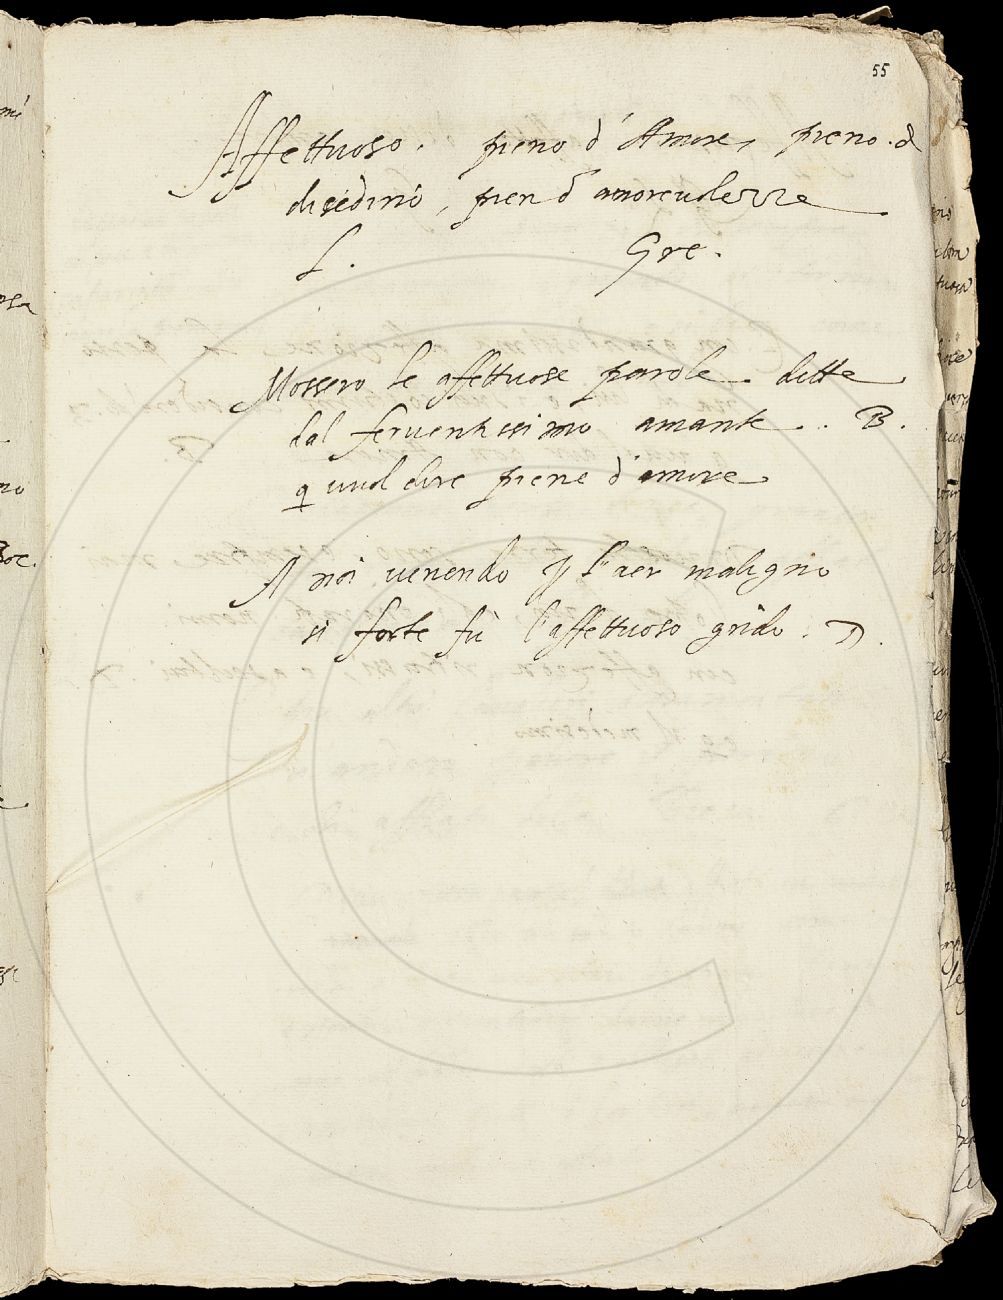 55
Affettuoso. pieno d'Amore, pieno. d
disiderio, pien d'amorevolezze
L. Gre.
Mossero le affettuose parole ditte
dal ferventissimo amante. B.
q vuol dire piene d'amore
A noi venendo p l'aer maligno
si forte fù l'affettuoso grido. D.